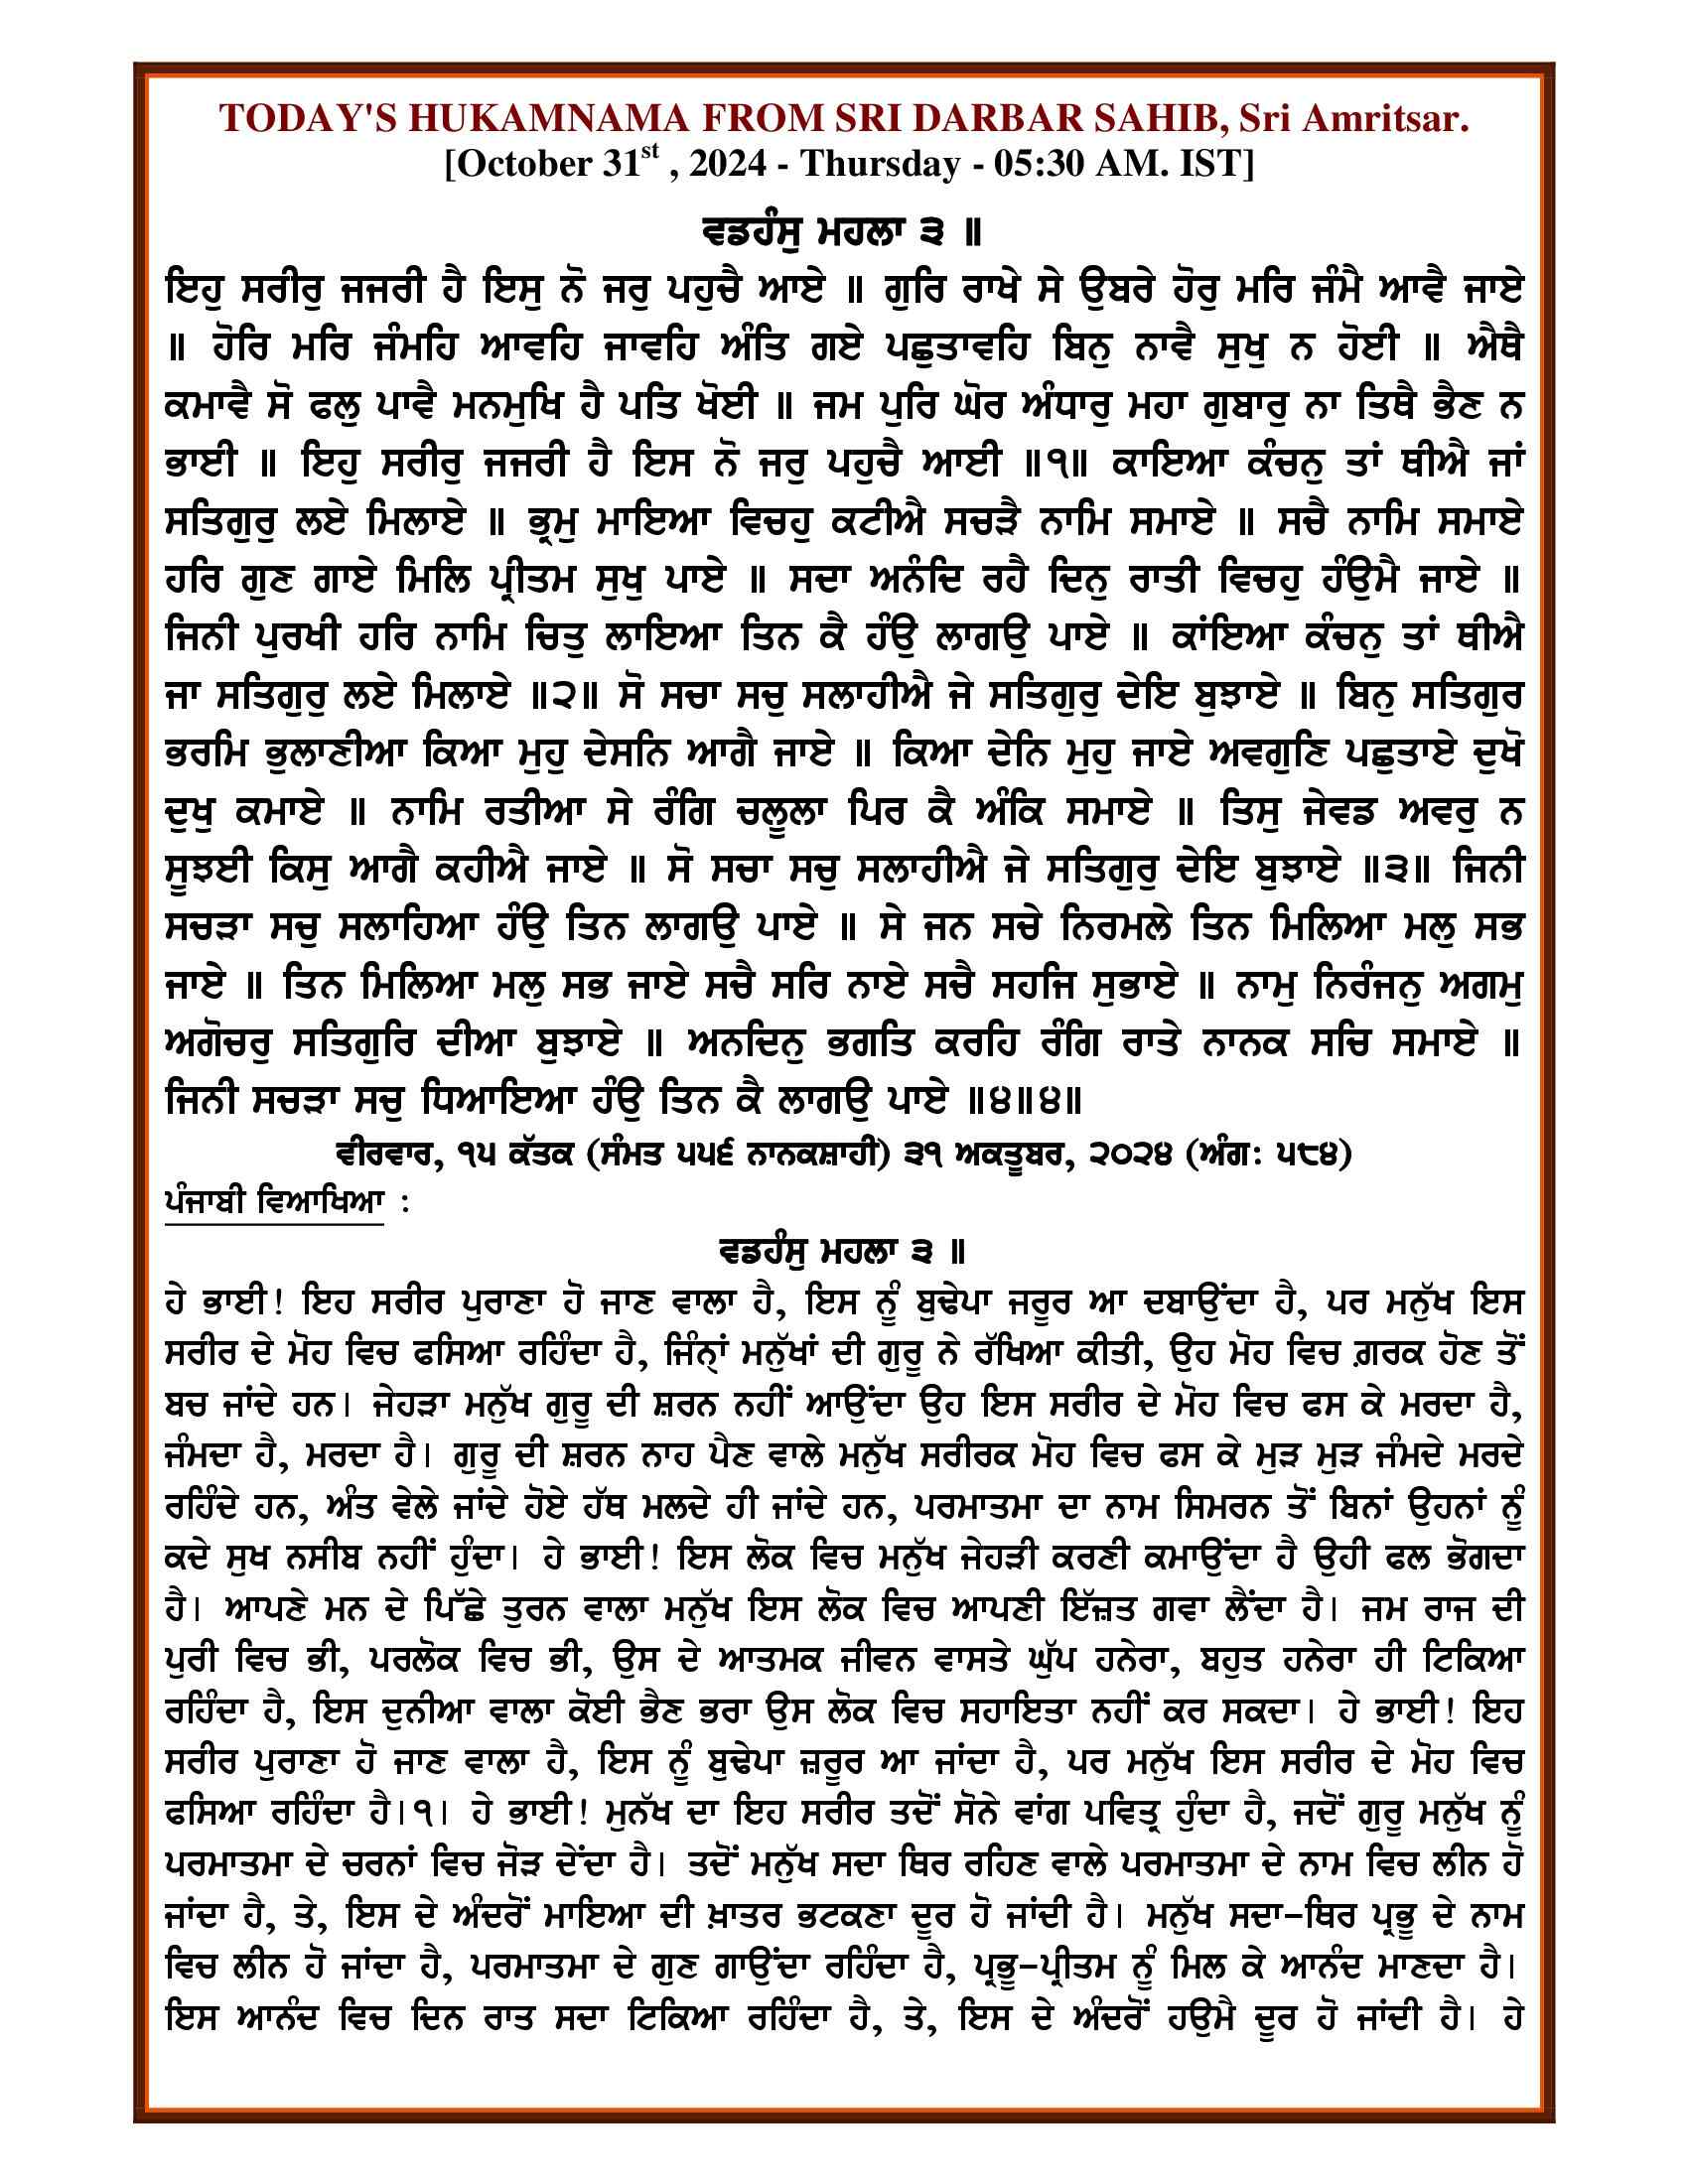 TODAY'S HUKAMNAMA FROM SRI DARBAR SAHIB, Sri Amritsar.
[October 31st , 2024 - Thursday - 05:30 AM. IST]
ਵਡਹੰਸੁ ਮਹਲਾ ੩ ॥
ਇਹੁ ਸਰੀਰੁ ਜਜਰੀ ਹੈ ਇਸੁ ਨੋ ਜਰੁ ਪਹੁਚੈ ਆਏ ॥ ਗੁਰਿ ਰਾਖੇ ਸੇ ਉਬਰੇ ਹੋਰੁ ਮਰਿ ਜੰਮੈ ਆਵੈ ਜਾਏ
॥ ਹੋਰਿ ਮਰਿ ਜੰਮਹਿ ਆਵਹਿ ਜਾਵਹਿ ਅੰਤਿ ਗਏ ਪਛੁਤਾਵਹਿ ਬਿਨੁ ਨਾਵੈ ਸੁਖੁ ਨ ਹੋਈ ॥ ਐਥੈ
ਕਮਾਵੈ ਸੋ ਫਲੁ ਪਾਵੈ ਮਨਮੁਖਿ ਹੈ ਪਤਿ ਖੋਈ ॥ ਜਮ ਪੁਰਿ ਘੋਰ ਅੰਧਾਰੁ ਮਹਾ ਗੁਬਾਰੁ ਨਾ ਤਿਥੈ ਭੈਣ ਨ
ਭਾਈ ॥ ਇਹੁ ਸਰੀਰੁ ਜਜਰੀ ਹੈ ਇਸ ਨੋ ਜਰੁ ਪਹੁਚੈ ਆਈ ॥੧॥ ਕਾਇਆ ਕੰਚਨੁ ਤਾਂ ਥੀਐ ਜਾਂ
ਸਤਿਗੁਰੁ ਲਏ ਮਿਲਾਏ ॥ ਭ੍ਰਮੁ ਮਾਇਆ ਵਿਚਹੁ ਕਟੀਐ ਸਚੜੈ ਨਾਮਿ ਸਮਾਏ ॥ ਸਚੈ ਨਾਮਿ ਸਮਾਏ
ਹਰਿ ਗੁਣ ਗਾਏ ਮਿਲਿ ਪ੍ਰੀਤਮ ਸੁਖੁ ਪਾਏ ॥ ਸਦਾ ਅਨੰਦਿ ਰਹੈ ਦਿਨੁ ਰਾਤੀ ਵਿਚਹੁ ਹੰਉਮੈ ਜਾਏ ॥
ਜਿਨੀ ਪੁਰਖੀ ਹਰਿ ਨਾਮਿ ਚਿਤੁ ਲਾਇਆ ਤਿਨ ਕੈ ਹੰਉ ਲਾਗਉ ਪਾਏ ॥ ਕਾਂਇਆ ਕੰਚਨੁ ਤਾਂ ਥੀਐ
ਜਾ ਸਤਿਗੁਰੁ ਲਏ ਮਿਲਾਏ ॥੨॥ ਸੋ ਸਚਾ ਸਚੁ ਸਲਾਹੀਐ ਜੇ ਸਤਿਗੁਰੁ ਦੇਇ ਬੁਝਾਏ ॥ ਬਿਨੁ ਸਤਿਗੁਰ
ਭਰਮਿ ਭੁਲਾਣੀਆ ਕਿਆ ਮੁਹੁ ਦੇਸਨਿ ਆਗੈ ਜਾਏ ॥ ਕਿਆ ਦੇਨਿ ਮੁਹੁ ਜਾਏ ਅਵਗੁਣਿ ਪਛੁਤਾਏ ਦੁਖੋ
ਦੁਖੁ ਕਮਾਏ ॥ ਨਾਮਿ ਰਤੀਆ ਸੇ ਰੰਗਿ ਚਲੂਲਾ ਪਿਰ ਕੈ ਅੰਕਿ ਸਮਾਏ ॥ ਤਿਸੁ ਜੇਵਡ ਅਵਰੁ ਨ
ਸੂਝਈ ਕਿਸੁ ਆਗੈ ਕਹੀਐ ਜਾਏ ॥ ਸੋ ਸਚਾ ਸਚੁ ਸਲਾਹੀਐ ਜੇ ਸਤਿਗੁਰੁ ਦੇਇ ਬੁਝਾਏ ॥੩॥ ਜਿਨੀ
ਸਚੜਾ ਸਚੁ ਸਲਾਹਿਆ ਹੰਉ ਤਿਨ ਲਾਗਉ ਪਾਏ ॥ ਸੇ ਜਨ ਸਚੇ ਨਿਰਮਲੇ ਤਿਨ ਮਿਲਿਆ ਮਲੁ ਸਭ
ਜਾਏ ॥ ਤਿਨ ਮਿਲਿਆ ਮਲੁ ਸਭ ਜਾਏ ਸਚੈ ਸਰਿ ਨਾਏ ਸਚੈ ਸਹਜਿ ਸੁਭਾਏ ॥ ਨਾਮੁ ਨਿਰੰਜਨੁ ਅਗਮੁ
ਅਗੋਚਰੁ ਸਤਿਗੁਰਿ ਦੀਆ ਬੁਝਾਏ ॥ ਅਨਦਿਨੁ ਭਗਤਿ ਕਰਹਿ ਰੰਗਿ ਰਾਤੇ ਨਾਨਕ ਸਚਿ ਸਮਾਏ ॥
ਜਿਨੀ ਸਚੜਾ ਸਚੁ ਧਿਆਇਆ ਹੰਉ ਤਿਨ ਕੈ ਲਾਗਉ ਪਾਏ ॥੪॥੪॥
ਵੀਰਵਾਰ, ੧੫ ਕੱਤਕ (ਸੰਮਤ ੫੫੬ ਨਾਨਕਸ਼ਾਹੀ) ੩੧ ਅਕਤੂਬਰ, ੨੦੨੪ (ਅੰਗ: ੫੮੪)
ਪੰਜਾਬੀ ਵਿਆਖਿਆ :
ਵਡਹੰਸੁ ਮਹਲਾ ੩ ॥
ਹੇ ਭਾਈ! ਇਹ ਸਰੀਰ ਪੁਰਾਣਾ ਹੋ ਜਾਣ ਵਾਲਾ ਹੈ, ਇਸ ਨੂੰ ਬੁਢੇਪਾ ਜਰੂਰ ਆ ਦਬਾਉਂਦਾ ਹੈ, ਪਰ ਮਨੁੱਖ ਇਸ
ਸਰੀਰ ਦੇ ਮੋਹ ਵਿਚ ਫਸਿਆ ਰਹਿੰਦਾ ਹੈ, ਜਿੰਨ੍ਹਾਂ ਮਨੁੱਖਾਂ ਦੀ ਗੁਰੂ ਨੇ ਰੱਖਿਆ ਕੀਤੀ, ਉਹ ਮੋਹ ਵਿਚ ਗ਼ਰਕ ਹੋਣ ਤੋਂ
ਬਚ ਜਾਂਦੇ ਹਨ। ਜੇਹੜਾ ਮਨੁੱਖ ਗੁਰੂ ਦੀ ਸ਼ਰਨ ਨਹੀਂ ਆਉਂਦਾ ਉਹ ਇਸ ਸਰੀਰ ਦੇ ਮੋਹ ਵਿਚ ਫਸ ਕੇ ਮਰਦਾ ਹੈ,
ਜੰਮਦਾ ਹੈ, ਮਰਦਾ ਹੈ। ਗੁਰੂ ਦੀ ਸ਼ਰਨ ਨਾਹ ਪੈਣ ਵਾਲੇ ਮਨੁੱਖ ਸਰੀਰਕ ਮੋਹ ਵਿਚ ਫਸ ਕੇ ਮੁੜ ਮੁੜ ਜੰਮਦੇ ਮਰਦੇ
ਰਹਿੰਦੇ ਹਨ, ਅੰਤ ਵੇਲੇ ਜਾਂਦੇ ਹੋਏ ਹੱਥ ਮਲਦੇ ਹੀ ਜਾਂਦੇ ਹਨ, ਪਰਮਾਤਮਾ ਦਾ ਨਾਮ ਸਿਮਰਨ ਤੋਂ ਬਿਨਾਂ ਉਹਨਾਂ ਨੂੰ
ਕਦੇ ਸੁਖ ਨਸੀਬ ਨਹੀਂ ਹੁੰਦਾ। ਹੇ ਭਾਈ! ਇਸ ਲੋਕ ਵਿਚ ਮਨੁੱਖ ਜੇਹੜੀ ਕਰਣੀ ਕਮਾਉਂਦਾ ਹੈ ਉਹੀ ਫਲ ਭੋਗਦਾ
ਹੈ। ਆਪਣੇ ਮਨ ਦੇ ਪਿੱਛੇ ਤੁਰਨ ਵਾਲਾ ਮਨੁੱਖ ਇਸ ਲੋਕ ਵਿਚ ਆਪਣੀ ਇੱਜ਼ਤ ਗਵਾ ਲੈਂਦਾ ਹੈ। ਜਮ ਰਾਜ ਦੀ
ਪੁਰੀ ਵਿਚ ਭੀ, ਪਰਲੋਕ ਵਿਚ ਭੀ, ਉਸ ਦੇ ਆਤਮਕ ਜੀਵਨ ਵਾਸਤੇ ਘੁੱਪ ਹਨੇਰਾ, ਬਹੁਤ ਹਨੇਰਾ ਹੀ ਟਿਕਿਆ
ਰਹਿੰਦਾ ਹੈ, ਇਸ ਦੁਨੀਆ ਵਾਲਾ ਕੋਈ ਭੈਣ ਭਰਾ ਉਸ ਲੋਕ ਵਿਚ ਸਹਾਇਤਾ ਨਹੀਂ ਕਰ ਸਕਦਾ। ਹੇ ਭਾਈ! ਇਹ
ਸਰੀਰ ਪੁਰਾਣਾ ਹੋ ਜਾਣ ਵਾਲਾ ਹੈ, ਇਸ ਨੂੰ ਬੁਢੇਪਾ ਜ਼ਰੂਰ ਆ ਜਾਂਦਾ ਹੈ, ਪਰ ਮਨੁੱਖ ਇਸ ਸਰੀਰ ਦੇ ਮੋਹ ਵਿਚ
ਫਸਿਆ ਰਹਿੰਦਾ ਹੈ।੧। ਹੇ ਭਾਈ! ਮੁਨੱਖ ਦਾ ਇਹ ਸਰੀਰ ਤਦੋਂ ਸੋਨੇ ਵਾਂਗ ਪਵਿਤ੍ਰ ਹੁੰਦਾ ਹੈ, ਜਦੋਂ ਗੁਰੂ ਮਨੁੱਖ ਨੂੰ
ਪਰਮਾਤਮਾ ਦੇ ਚਰਨਾਂ ਵਿਚ ਜੋੜ ਦੇਂਦਾ ਹੈ। ਤਦੋਂ ਮਨੁੱਖ ਸਦਾ ਥਿਰ ਰਹਿਣ ਵਾਲੇ ਪਰਮਾਤਮਾ ਦੇ ਨਾਮ ਵਿਚ ਲੀਨ ਹੋ
ਜਾਂਦਾ ਹੈ, ਤੇ, ਇਸ ਦੇ ਅੰਦਰੋਂ ਮਾਇਆ ਦੀ ਖ਼ਾਤਰ ਭਟਕਣਾ ਦੂਰ ਹੋ ਜਾਂਦੀ ਹੈ। ਮਨੁੱਖ ਸਦਾ-ਥਿਰ ਪ੍ਰਭੂ ਦੇ ਨਾਮ
ਵਿਚ ਲੀਨ ਹੋ ਜਾਂਦਾ ਹੈ, ਪਰਮਾਤਮਾ ਦੇ ਗੁਣ ਗਾਉਂਦਾ ਰਹਿੰਦਾ ਹੈ, ਪ੍ਰਭੂ-ਪ੍ਰੀਤਮ ਨੂੰ ਮਿਲ ਕੇ ਆਨੰਦ ਮਾਣਦਾ ਹੈ।
ਇਸ ਆਨੰਦ ਵਿਚ ਦਿਨ ਰਾਤ ਸਦਾ ਟਿਕਿਆ ਰਹਿੰਦਾ ਹੈ, ਤੇ, ਇਸ ਦੇ ਅੰਦਰੋਂ ਹਉਮੈ ਦੂਰ ਹੋ ਜਾਂਦੀ ਹੈ। ਹੇ